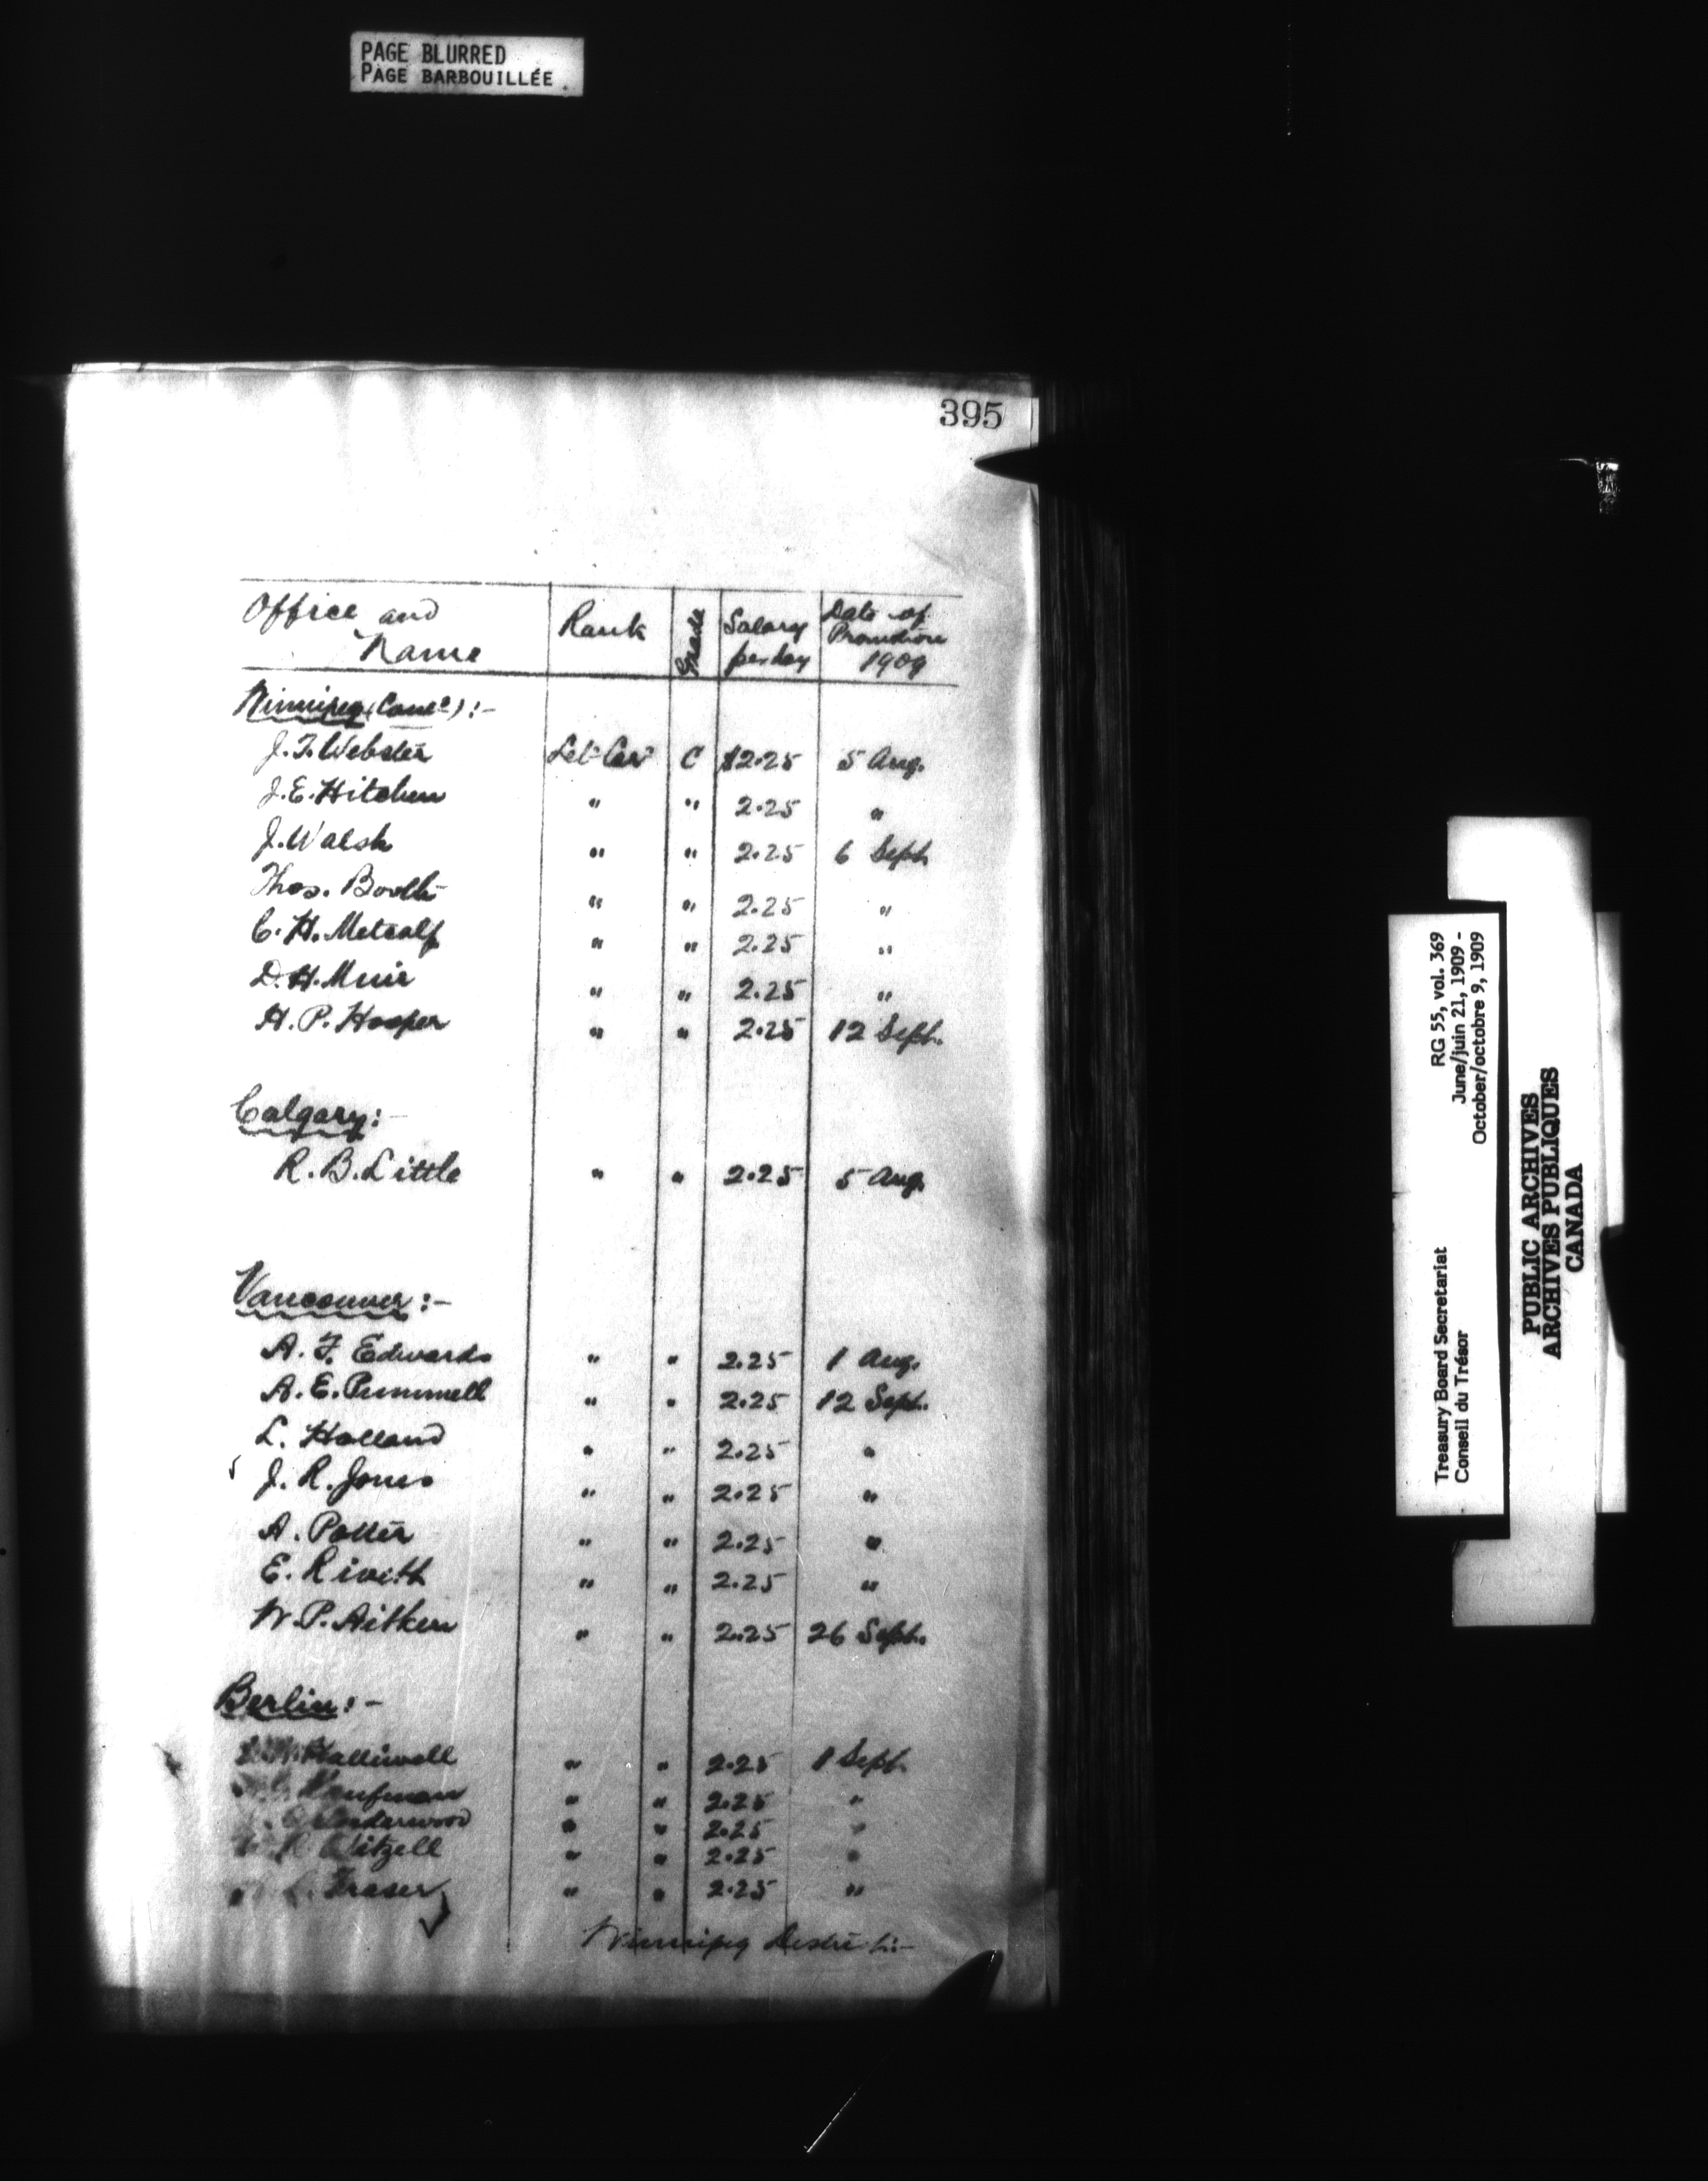 PAGE BLURRED
PAGE BARBOUILLÉE
395
Office and Name Rank Grade Salary per day Date of Promotion 1909
Winnipeg (Conc'd):-
J. T. Webster Let. Car. C $2.25 5 Aug.
J. E. Hitchen " " 2.25 "
J. Walsh " " 2.25 6 Sept.
Thos. Booth " " 2.25 "
C. H. Metcalf " " 2.25 "
D. H. Muir " " 2.25 "
H. P. Hooper " " 2.25 12 Sept.
Calgary:-
R. B. Little " " 2.25 5 Aug.
Vancouver:-
A. F. Edwards " " 2.25 1 Aug.
A. E. Pummell " " 2.25 12 Sept.
L. Holland " " 2.25 "
J. R. Jones " " 2.25 "
A. Potter " " 2.25 "
E. Rivett " " 2.25 "
W. P. Aitken " " 2.25 26 Sept.
Berlin:-
Halliwell " " 2.25 1 Sept.
Kaufman " " 2.25 "
Underwood " " 2.25 "
R. Witzell " " 2.25 "
Fraser " " 2.25 "
Winnipeg District:-
RG 55, vol. 369
June/juin 21, 1909 -
October/octobre 9, 1909
Treasury Board Secretariat
Conseil du Trésor
PUBLIC ARCHIVES
ARCHIVES PUBLIQUES
CANADA